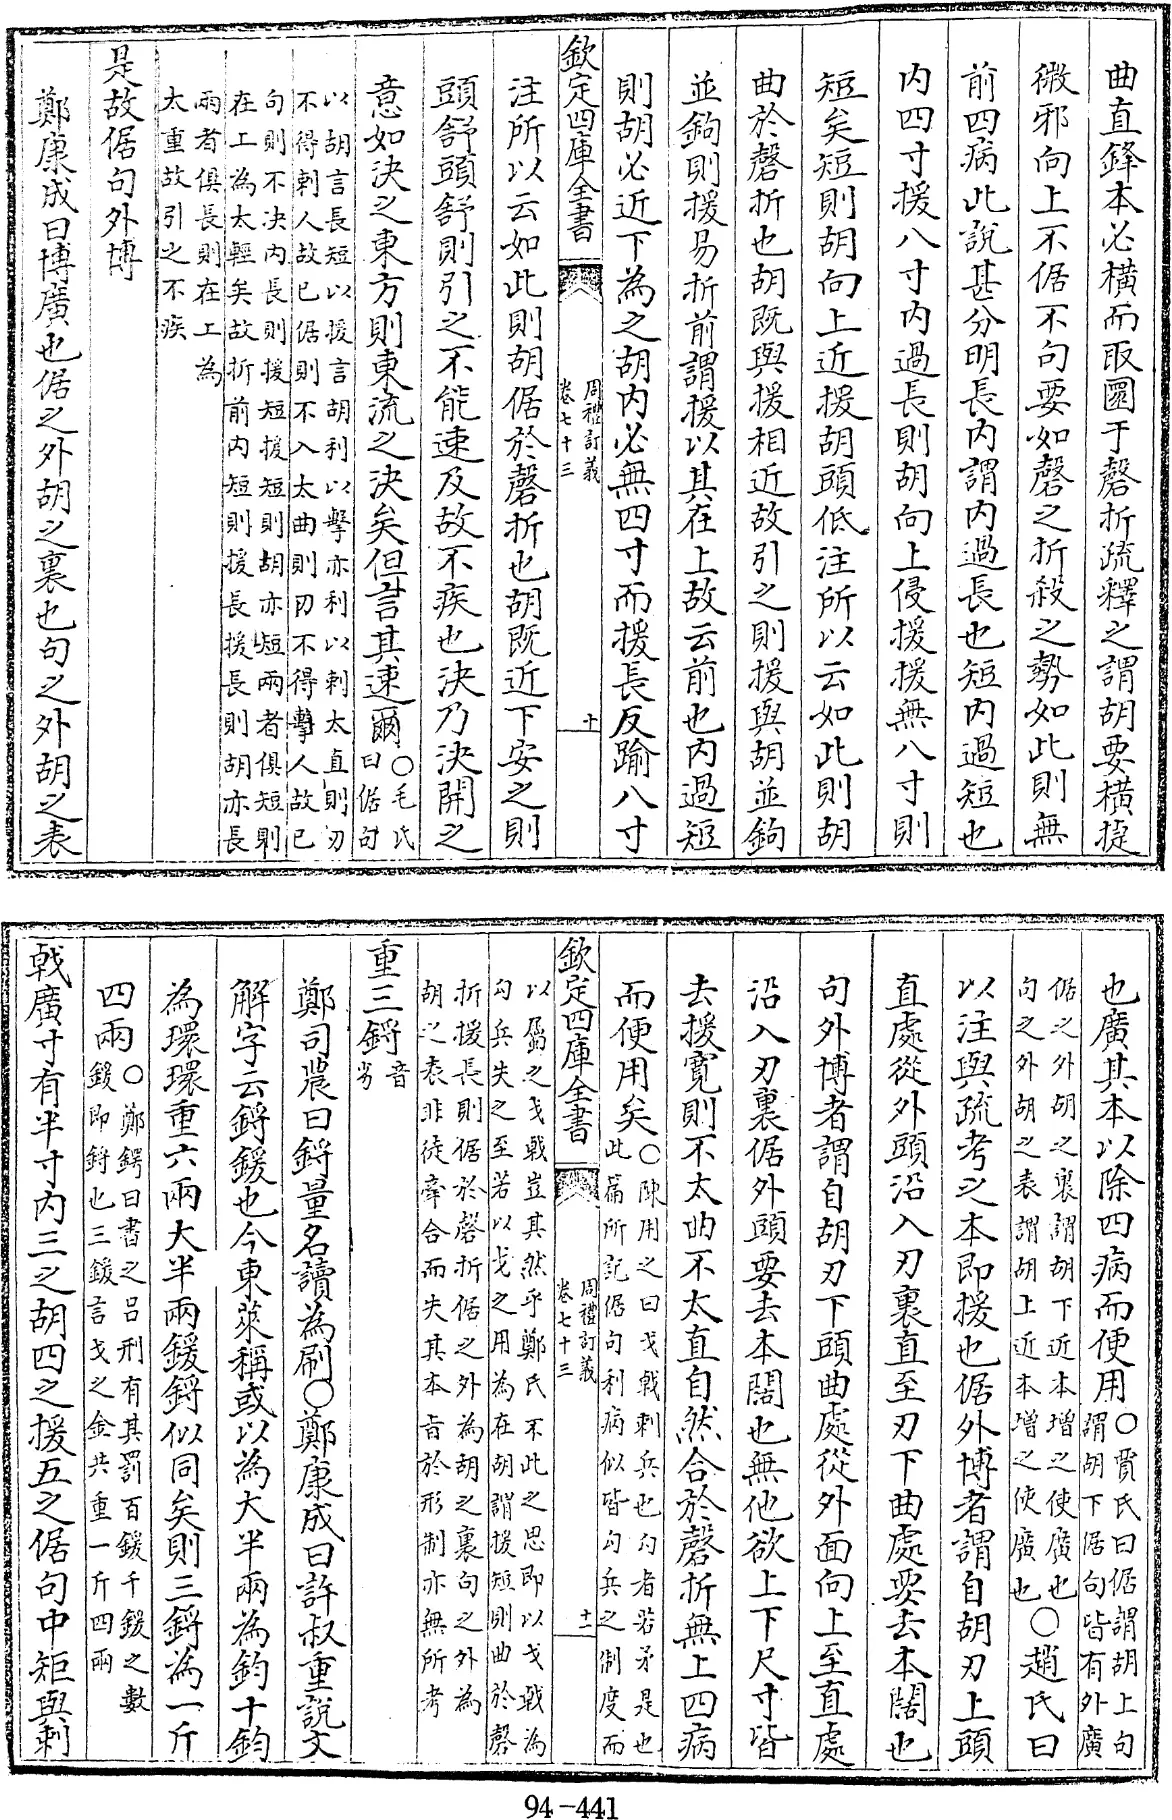 曲直鋒本必橫而取圜于磬折疏釋之謂胡要橫捷
微邪向上不倨不句要如磬之折殺之勢如此則無
前四病此說甚分明長內謂內過長也短內過短也
內四寸援八寸內過長則胡向上侵援援無八寸則
短矣短則胡向上近援胡頭低注所以云如此則胡
曲於磬折也胡既與援相近故引之則援與胡並鉤
並鉤則援易折前謂援以其在上故云前也內過短
則胡必近下為之胡內必無四寸而援長反踰八寸
欽定四庫全書
周禮訂義
卷七十三
十
注所以云如此則胡倨於磬折也胡既近下安之則
頭舒頭舒則引之不能速及故不疾也決乃決開之
意如決之東方則東流之決矣但言其速爾
○毛氏
曰倨句
以胡言長短以援言胡利以擊亦利以刺太直則刃
不得刺人故已倨則不入太曲則刃不得擊人故已
句則不決內長則援短援短則胡亦短兩者俱短則
在工為太輕矣故折前內短則援長援長則胡亦長
兩者俱長則在工為
太重故引之不疾
是故倨句外博
鄭康成曰博廣也倨之外胡之裏也句之外胡之表
也廣其本以除四病而便用
○賈氏曰倨謂胡上句
謂胡下倨句皆有外廣
倨之外胡之裏謂胡下近本增之使廣也
句之外胡之表謂胡上近本增之使廣也
○趙氏曰
以注與疏考之本即援也倨外博者謂自胡刃上頭
直處從外頭沿入刃裏直至刃下曲處要去本闊也
句外博者謂自胡刃下頭曲處從外面向上至直處
沿入刃裏倨外頭要去本闊也無他欲上下尺寸皆
去援寬則不太曲不太直自然合於磬折無上四病
而便用矣
○陳用之曰戈戟刺兵也勾者若矛是也
此篇所記倨句利病似皆勾兵之制度而
欽定四庫全書
周禮訂義
卷七十三
十一
以屬之戈戟豈其然乎鄭氏不此之思即以戈戟為
勾兵失之至若以戈之用為在胡謂援短則曲於磬
折援長則倨於磬折倨之外為胡之裏句之外為
胡之表非徒牽合而失其本旨於形制亦無所考
重三鋝
音
劣
鄭司農曰鋝量名讀為刷○鄭康成曰許叔重說文
解字云鋝鍰也今東萊稱或以為大半兩為鈞十鈞
為環環重六兩大半兩鍰鋝似同矣則三鋝為一斤
四兩
○鄭鍔曰書之呂刑有其罰百鍰千鍰之數
鍰即鋝也三鍰言戈之金共重一斤四兩
戟廣寸有半寸內三之胡四之援五之倨句中矩與刺
94-441